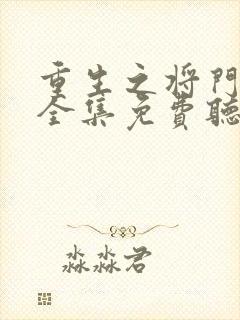 重生之将門
全集免費聽
淼淼君